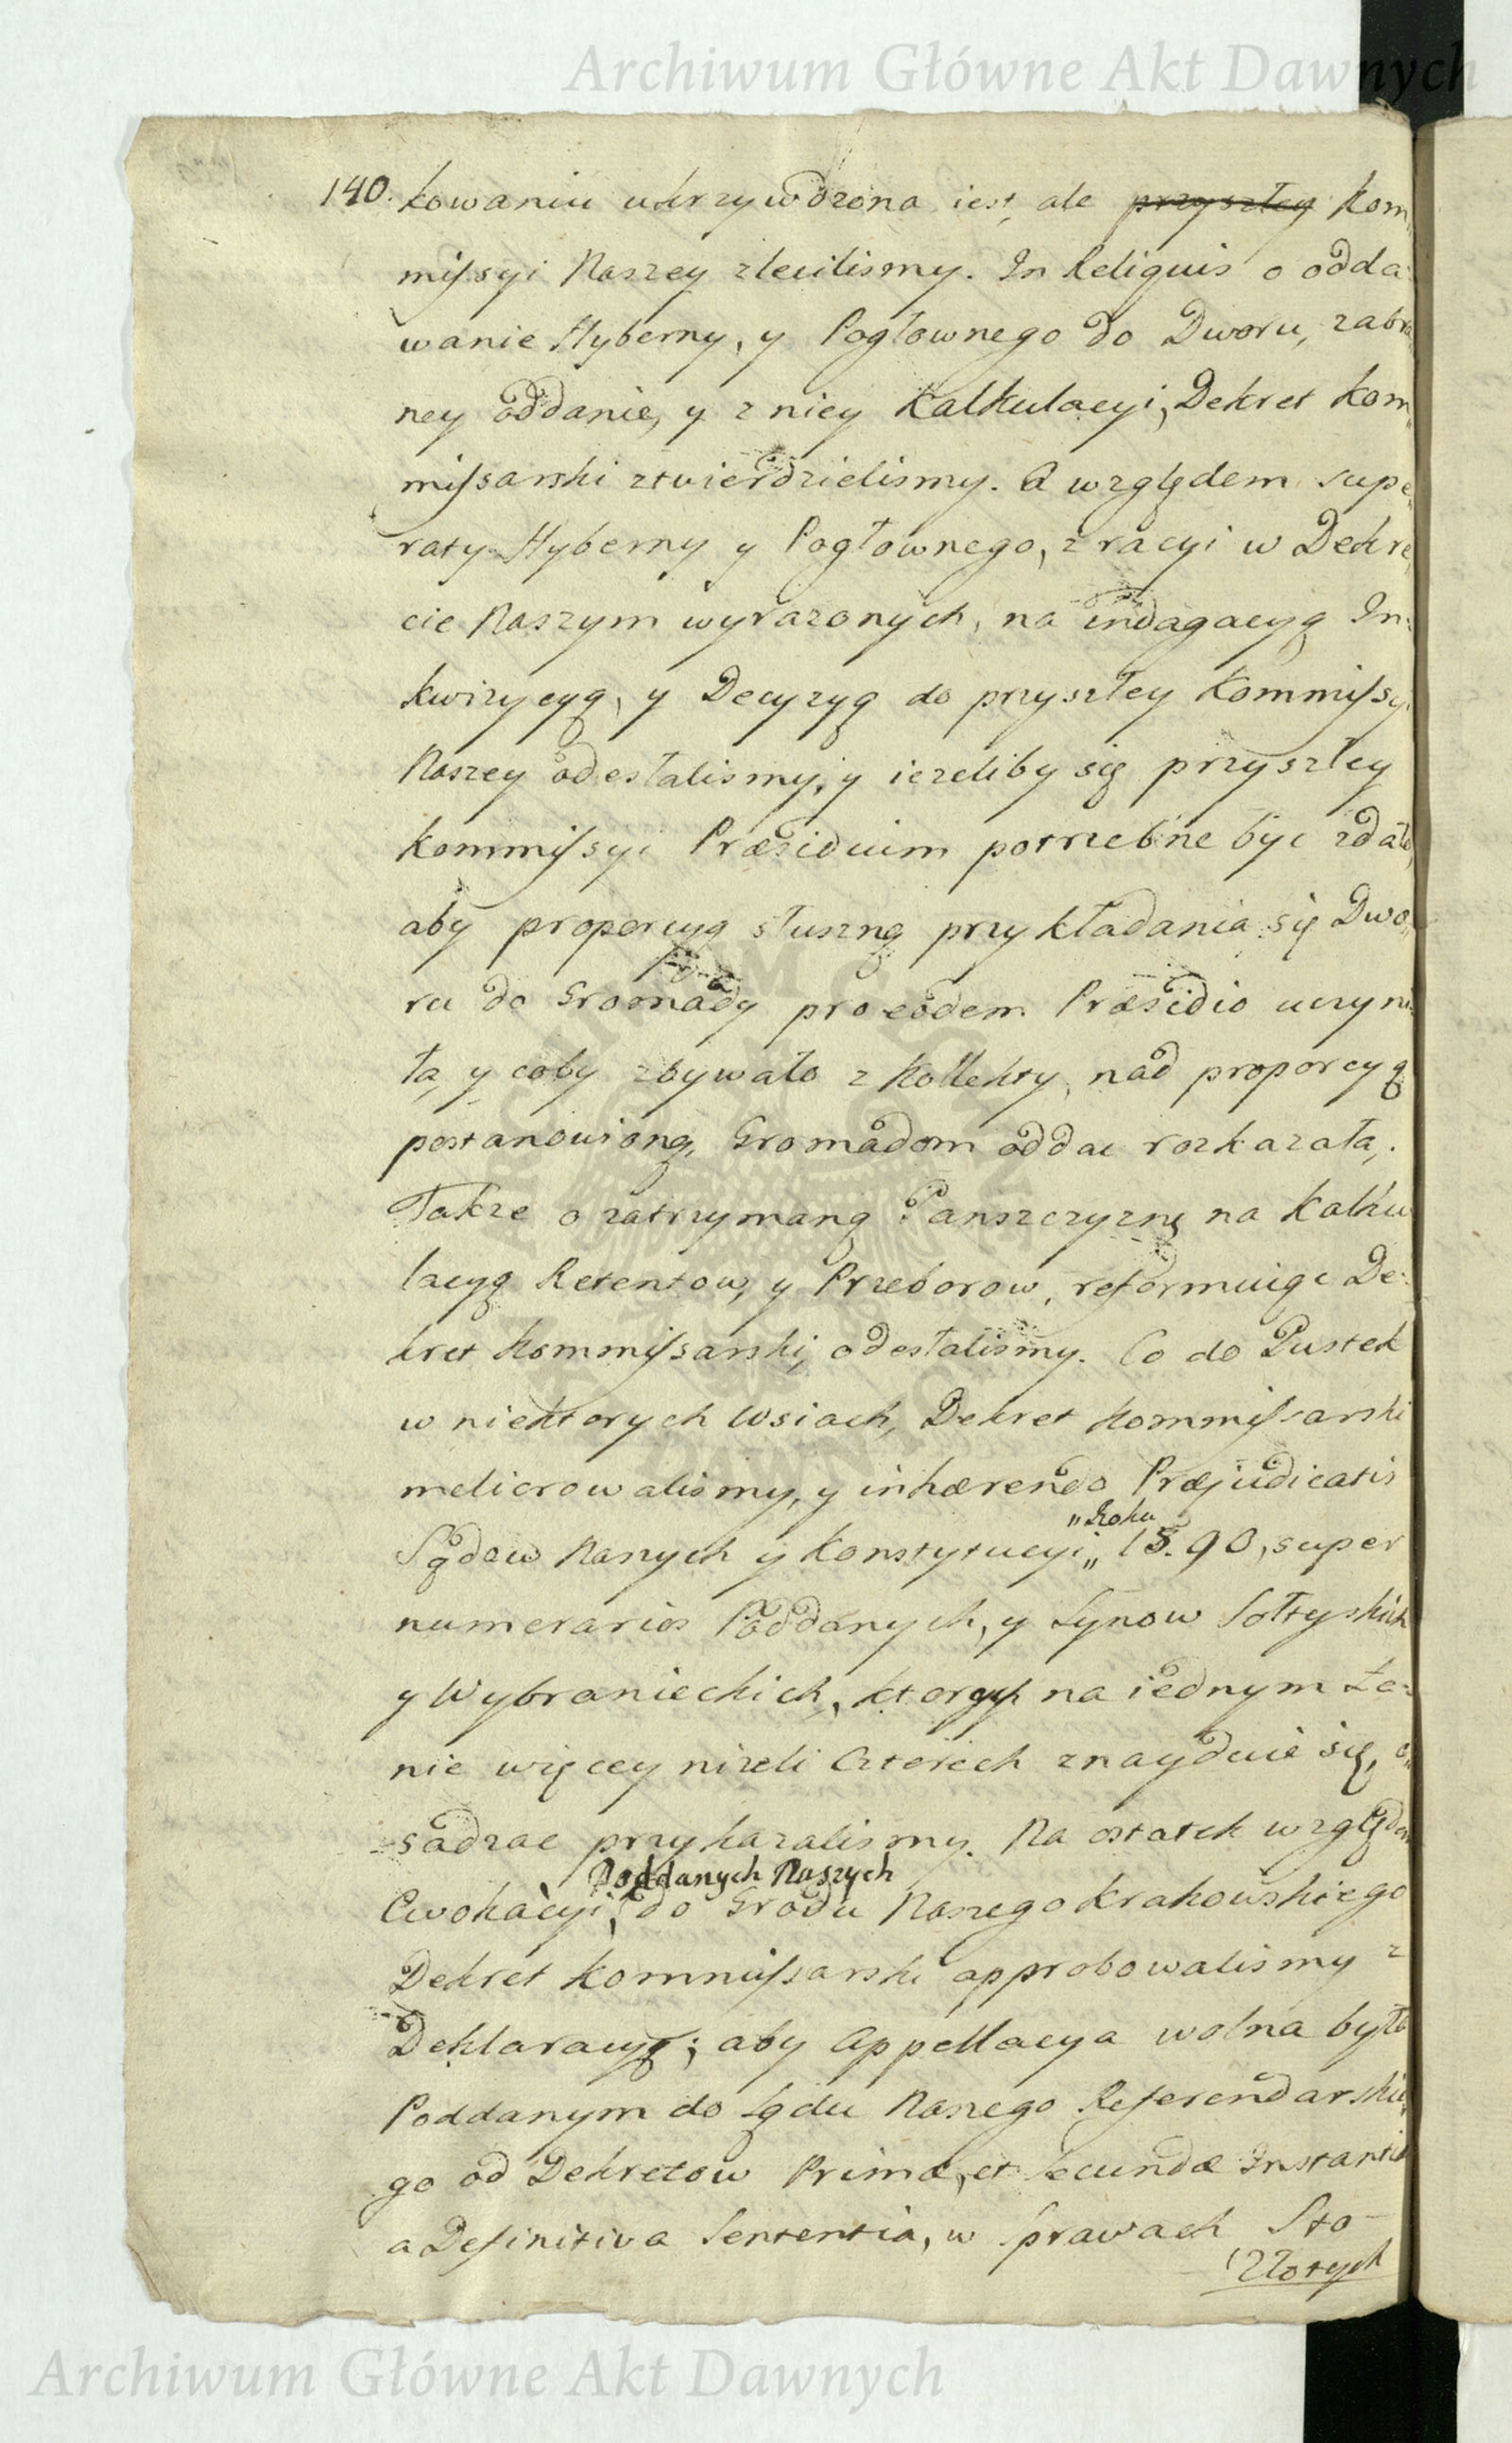 Archiwum Główne Akt Dawnych
140. kowaniu ukrzywdzona iest, ale przyszłey Kom„
miſsyi Naszey zleciliśmy. In Reliquis o odda„
wanie Hyberny, y Pogłownego do Dworu, zabra„
ney oddanie, y z niey Kalkulacyi, Dekret Kom„
miſsarski ztwierdzielismy. A względem supe„
raty Hyberny y Pogłownego, z racyi w Dekre„
cie Naszym wyrazonych, na indagacyą In„
kwizycyą, y Decyzyą do przyszłey Kommiſsyi
Naszey odesłalismy, y iezeliby się przyszłey
Kommiſsyi Præsidium potrzebne być zdało,
aby proporcyą słuszną przykładania się Dwo„
ru do Gromady pro eodem Præsidio uczyni„
ła, y coby zbywało z Kollekty, nad proporcyą
postanowioną, Gromadom oddac rozkazała,.
Takze o zatrzymaną Panszczyznę na Kalku
lacyą Retentow, y Przeborow, reformuiąc De„
kret Kommiſsarski, odesłalismy. Co do Pustek
w niektorych Wsiach, Dekret Kommiſsarski
meliorowalismy, y inhærendo Præjudicatis
„Roku
Sądow Naszych y Konstytucyi„ 1590, super
numerarios Poddanych, y Synow Sołtyskich
y Wybranieckich, ktorych na iednym Ła„
nie więcey nizeli Czterech znayduie się, o„
sadzac przykazalismy. Na ostatek względem
Poddanych Naszych
Ewokacyi, do Grodu Naszego Krakowskiego
Dekret Kommiſsarski approbowalismy z
Deklaracyą; aby Appellacya wolna była
Poddanym do Sądu Naszego Referendarskie„
go od Dekretow Primæ, et Secundæ Instantiæ
a Definitiva Sententia, w sprawach Sto
Złotych
Archiwum Główne Akt Dawnych